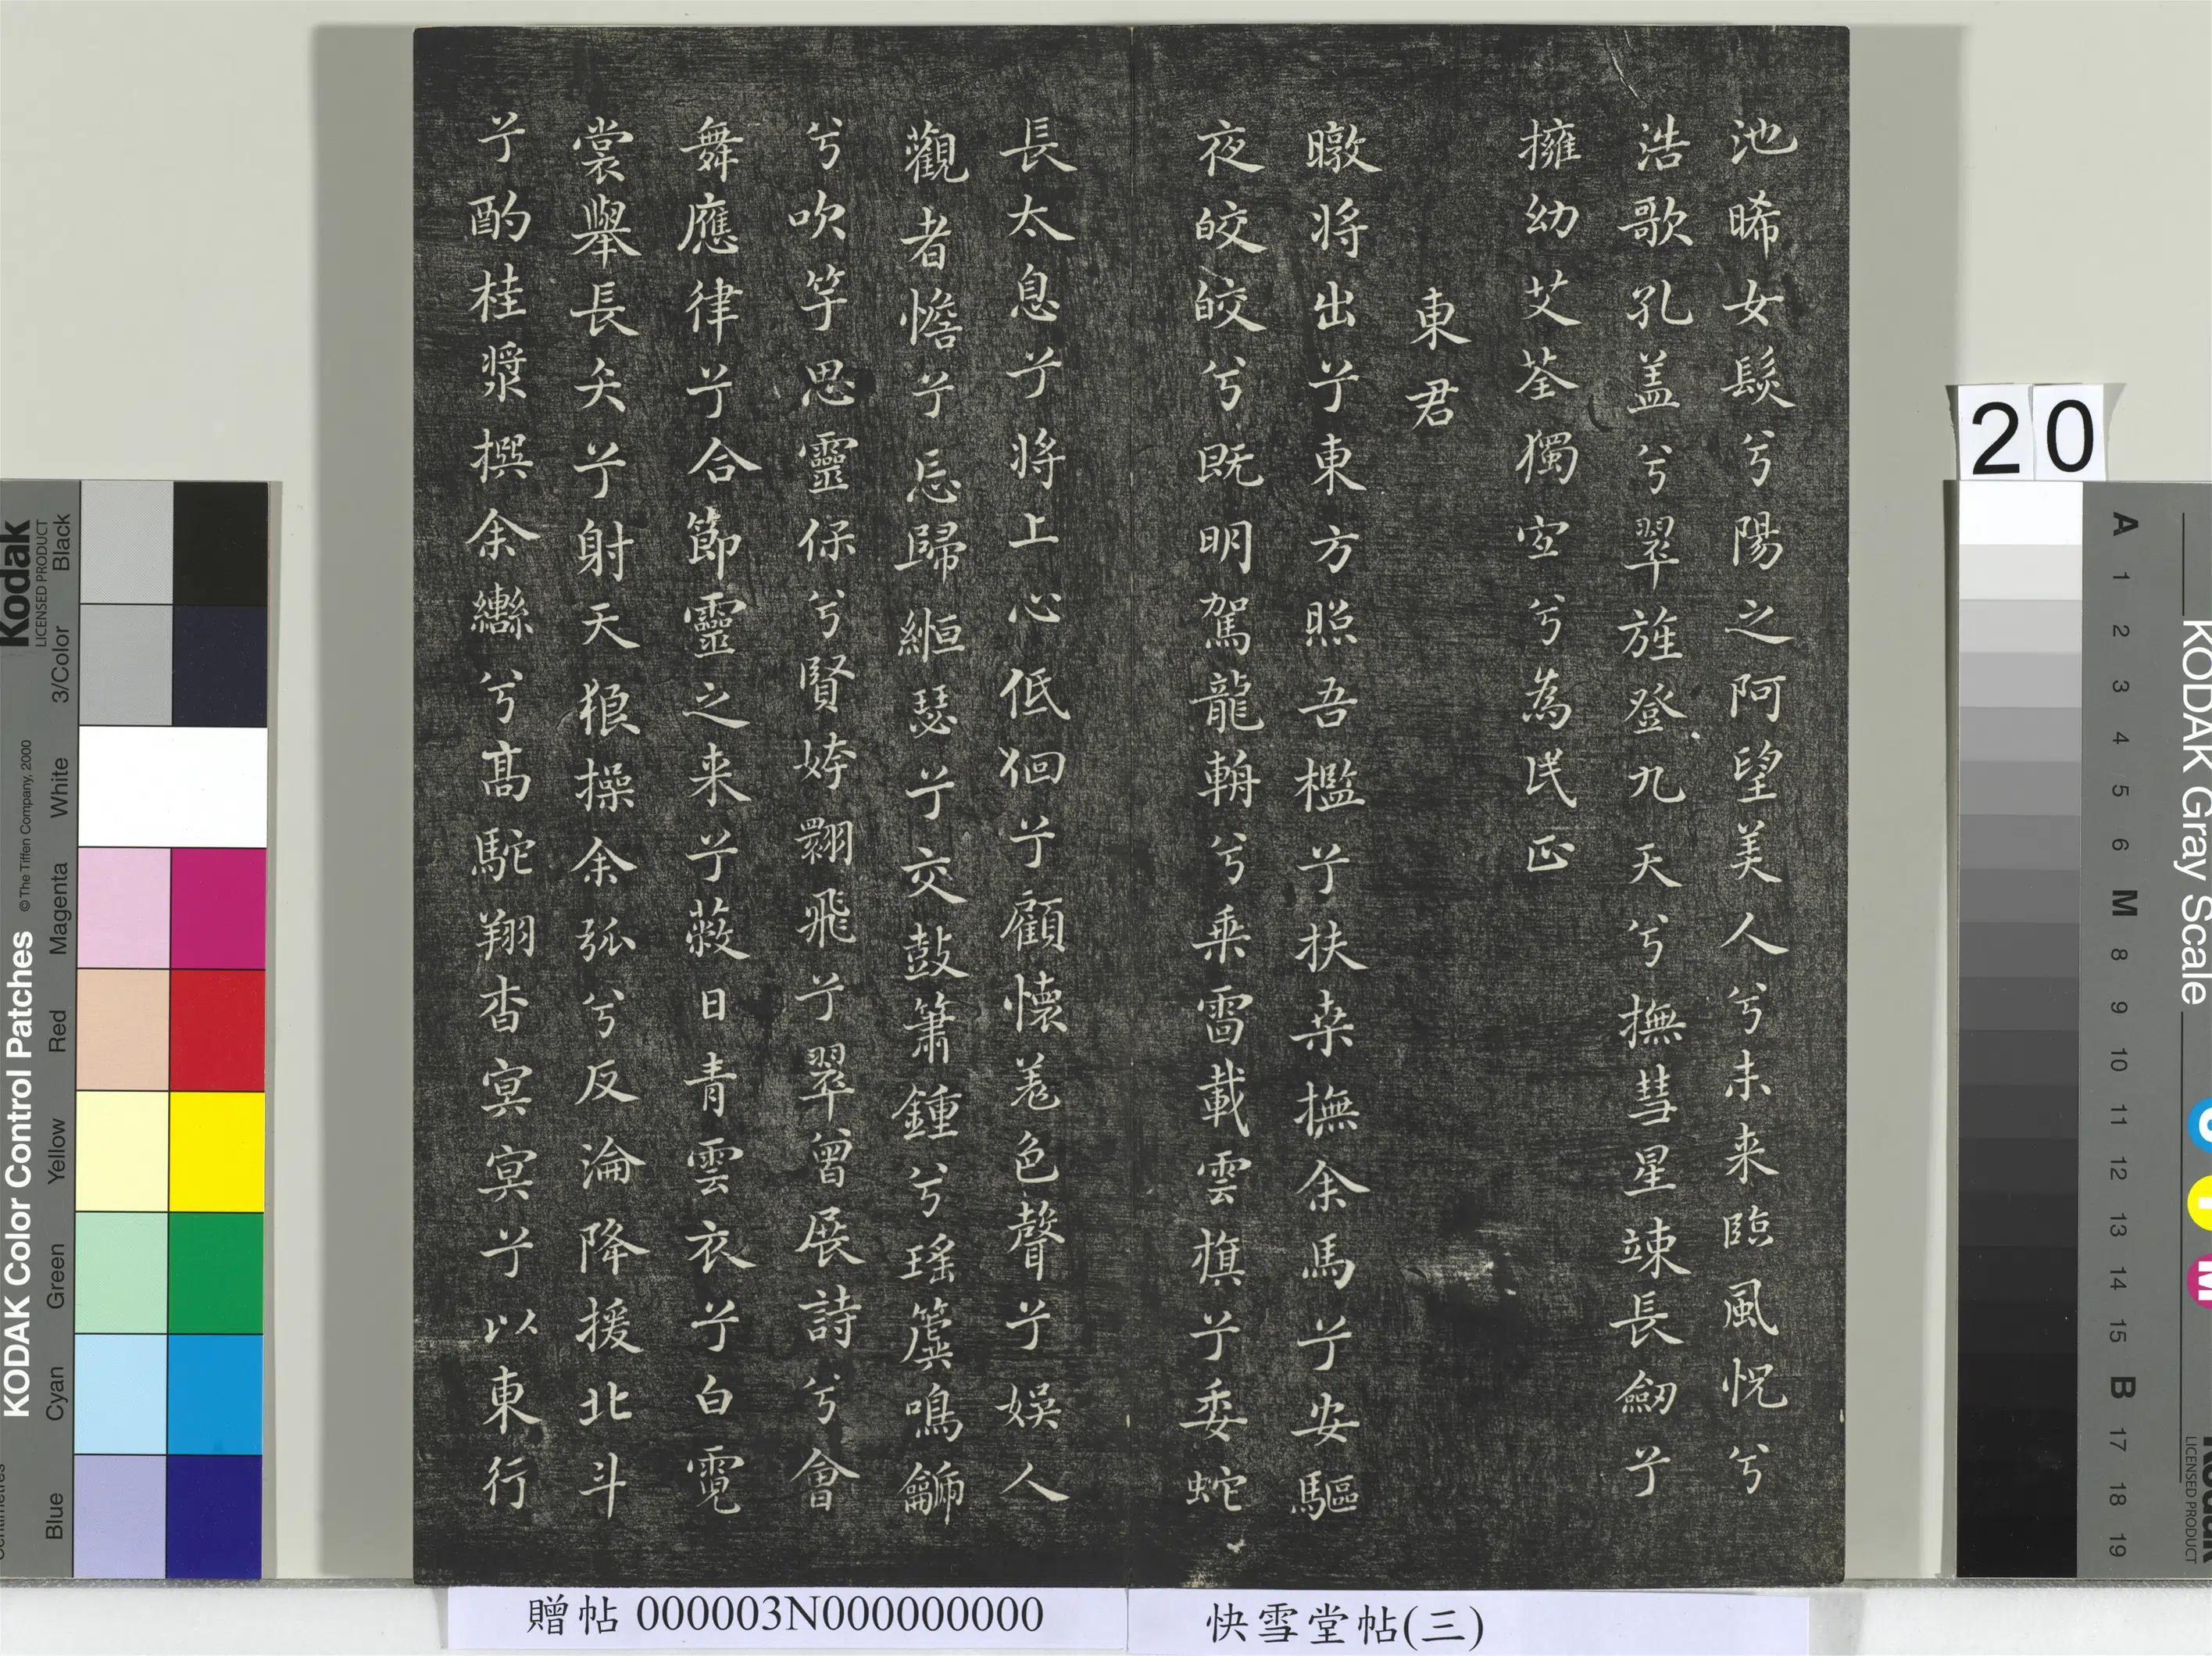 池晞女髮兮陽之阿望美人兮未来臨風怳兮
浩歌孔盖兮翠旌登九天兮撫彗星竦長劒兮
擁幼艾荃獨宜兮為民正
東君
暾将出兮東方照吾檻兮扶桒撫余馬兮安驅
夜皎皎兮既明駕龍輈兮乗雷載雲旗兮委蛇
長太息兮将上心低佪兮顧懷羌色聲兮娛人
觀者憺兮忘歸縆瑟兮交鼓簫鍾兮瑤簴鳴龥
兮吹竽思靈保兮賢姱翾飛兮翠曾展詩兮會
舞應律兮合節靈之来兮蔽日青雲衣兮白霓
裳舉長矢兮射天狼操余弧兮反淪降援北斗
兮酌桂漿撰余轡兮高駝翔杳冥冥兮以東行
贈帖 000003N000000000
快雪堂帖(三)
20
KODAK Color Control Patches
© The Tiffen Company, 2000
Kodak
LICENSED PRODUCT
Blue
Cyan
Green
Yellow
Red
Magenta
White
3/Color
Black
KODAK Gray Scale
A 1 2 3 4 5 6 M 8 9 10 11 12 13 14 15 B 17 18 19
C
Y
M
Kodak
LICENSED PRODUCT